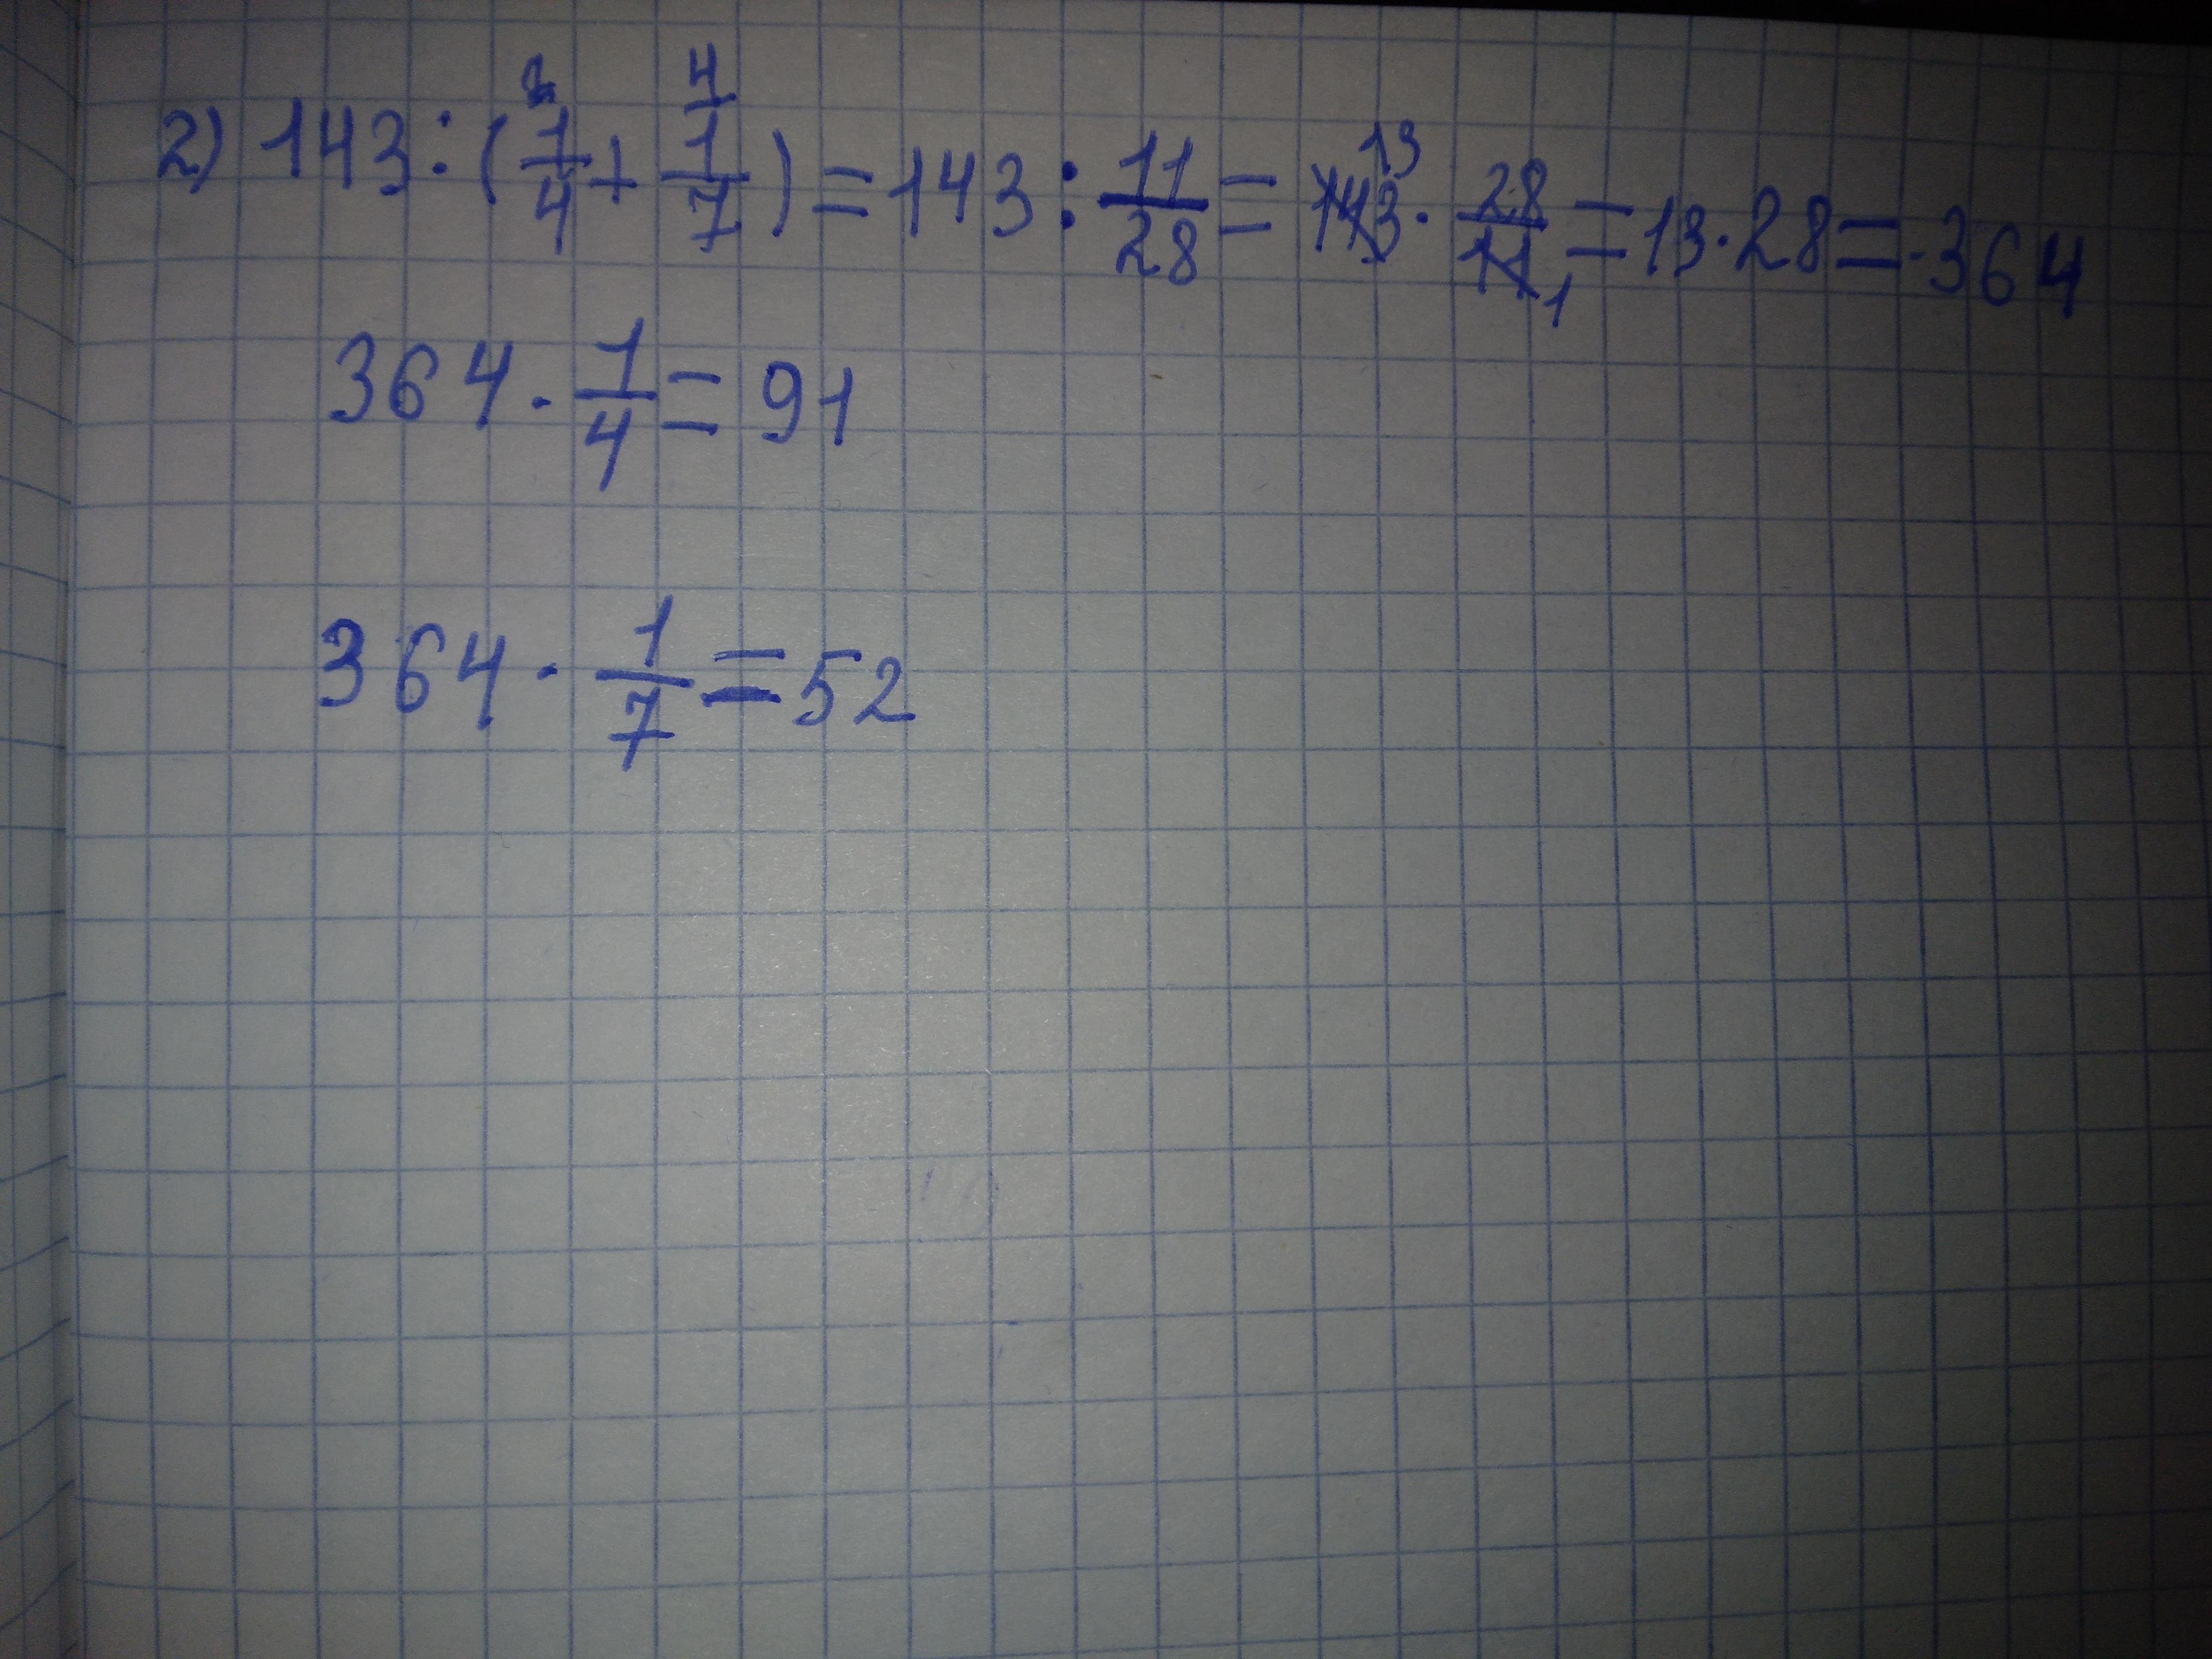 2) 143 : (1/4 + 1/7) = 143 : 11/28 = 143 13 · 28/11 1 = 13 · 28 = 364
364 · 1/4 = 91
364 · 1/7 = 52